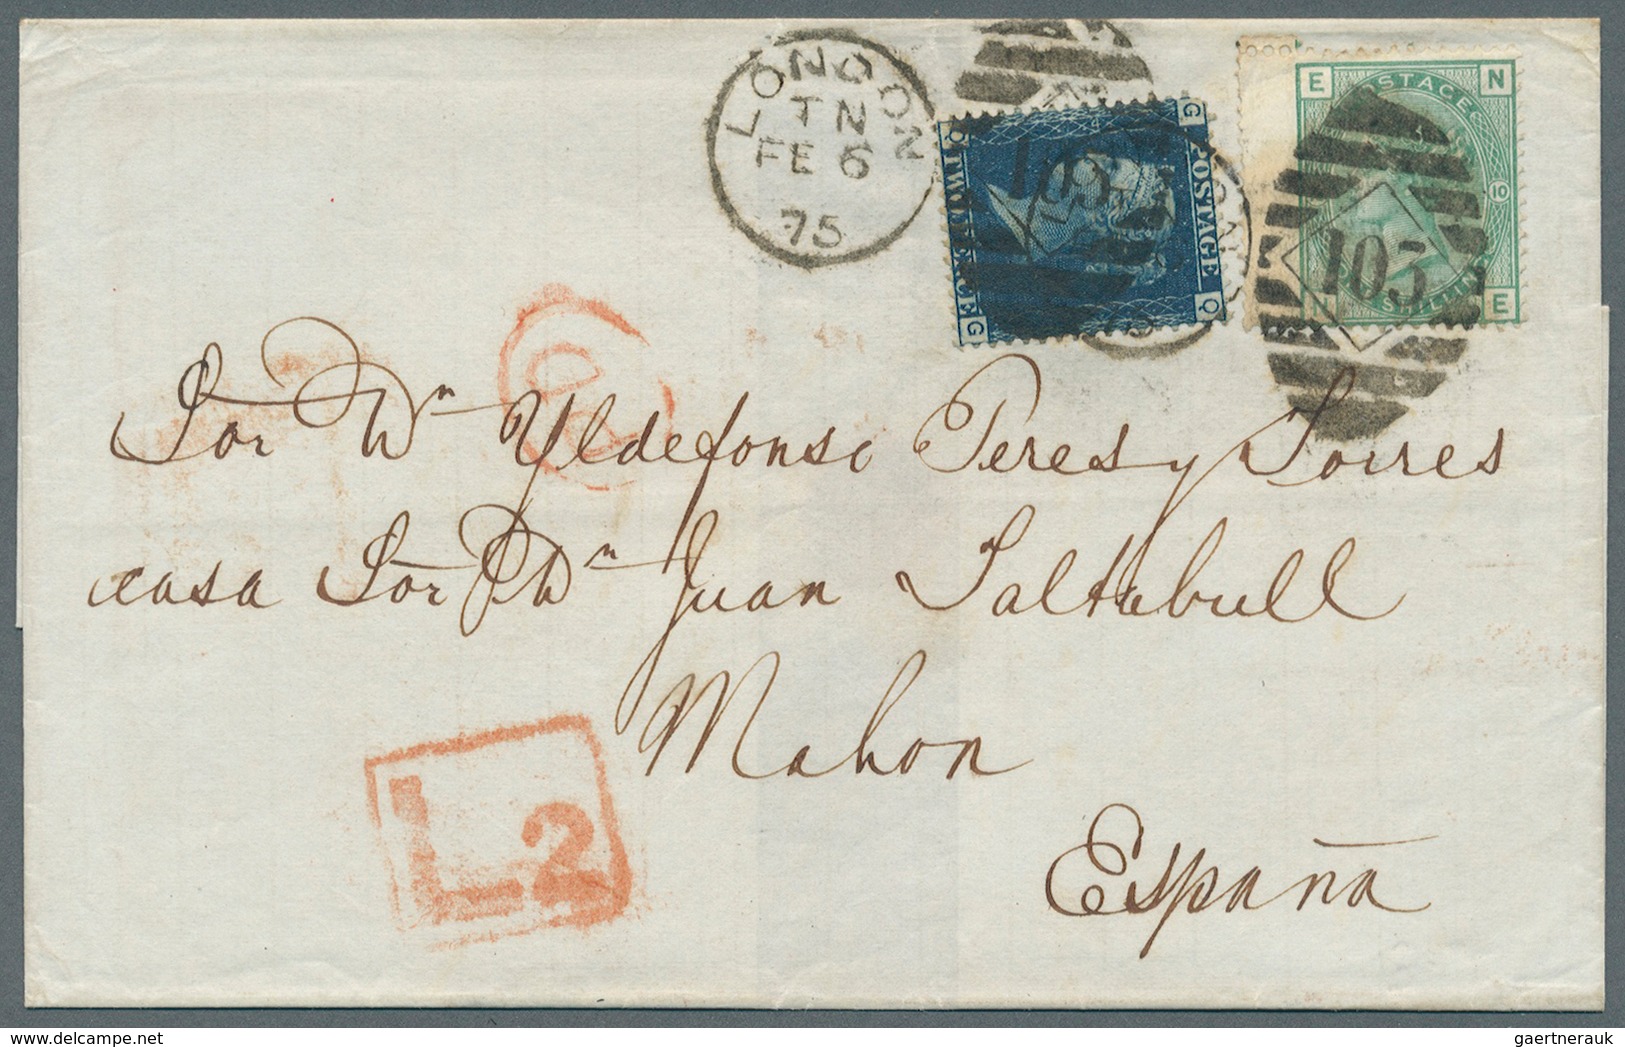 LONDON
TN
FE 6
75
G POSTAGE Q
103
Q TWO PENCE G
E POSTAGE N
10
103
SHILLING E
Sor Dn Yldefonso Peres y Torres
casa Sor Dn Juan Taltabull
Mahon
España
L2
gaertnerauk